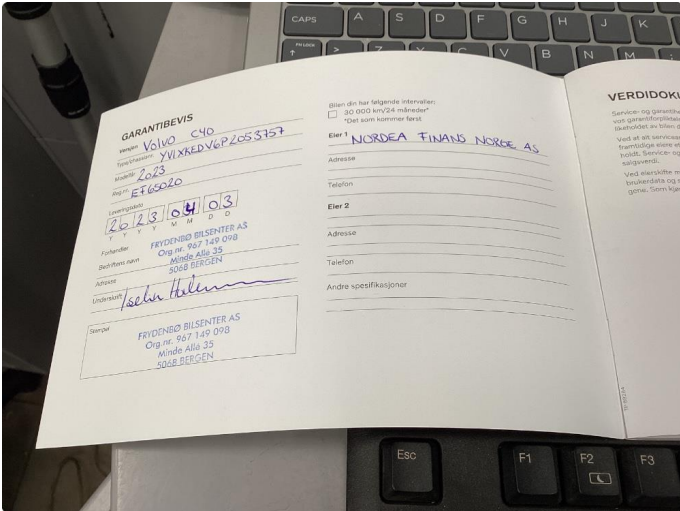 CAPS A S D F G H J K
> Z X C V B N M
GARANTIBEVIS
Versjon VOLVO C40
Type/chassisnr. YV1XKEDV6P2053757
Modellår 2023
Reg.nr. EF65020
Leveringsdato
2023 04 03
Y Y Y Y M M D D
Forhandler
Bedriftens navn
FRYDENBØ BILSENTER AS
Org.nr. 967 149 098
Minde Allè 35
5068 BERGEN
Adresse
Underskrift
Stempel
FRYDENBØ BILSENTER AS
Org.nr. 967 149 098
Minde Allè 35
5068 BERGEN
Bilen din har følgende intervaller:
30 000 km/24 måneder*
*Det som kommer først
Eier 1 NORDEA FINANS NORGE AS
Adresse
Telefon
Eier 2
Adresse
Telefon
Andre spesifikasjoner
VERDIDOKU
Service- og garantihe
vos garantiforplikte
likeholdet av bilen d
Ved at alt servicear
framtidige eiere et
holdt. Service- og
salgsverdi.
Ved eierskifte m
brukerdata og s
gone. Som kje
Esc F1 F2 F3